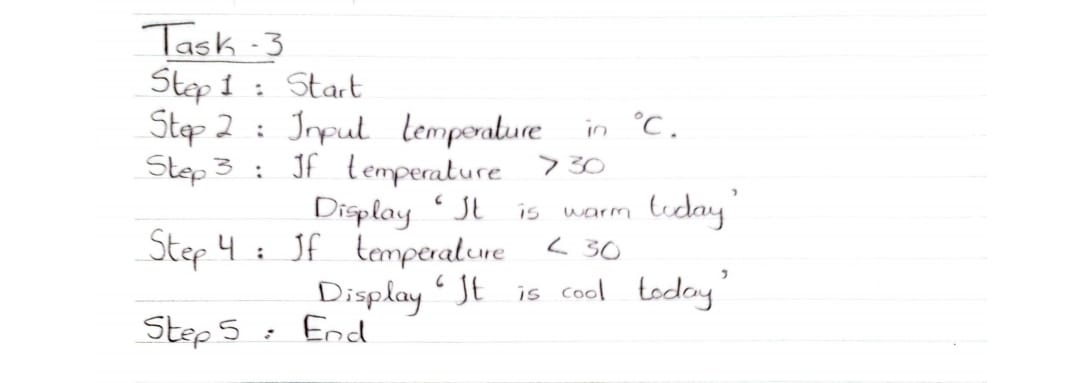 Task - 3
Step 1 : Start
Step 2 : Input temperature in °C.
Step 3 : If temperature > 30
Display ‘It is warm today’
Step 4 : If temperature < 30
Display ‘It is cool today’
Step 5 : End